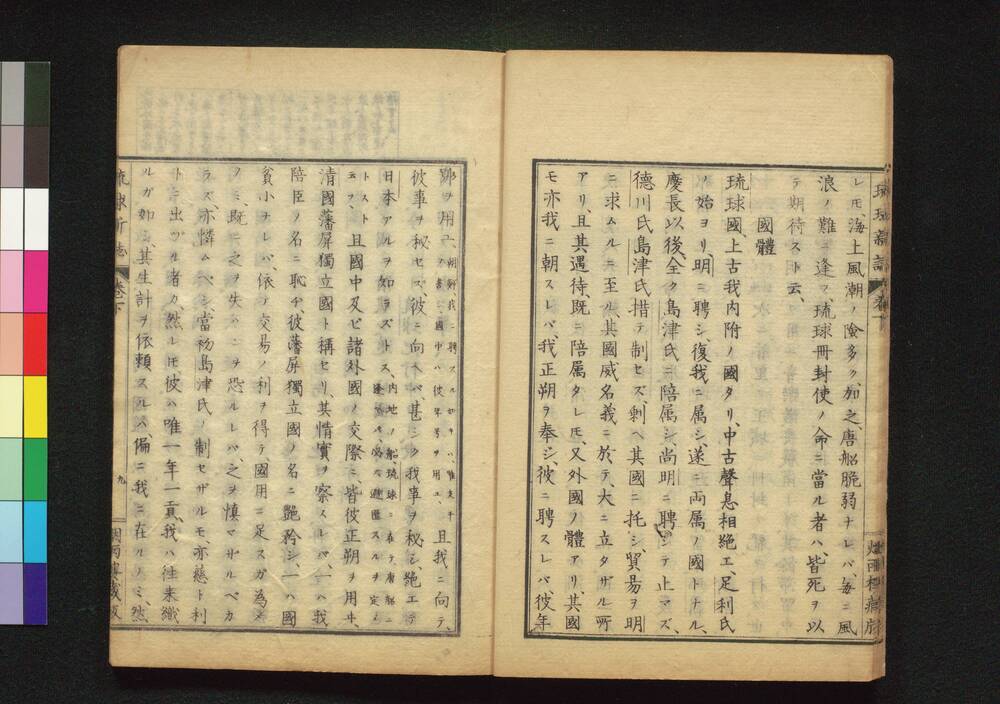 レ𪜈、海上風潮ノ險多ク、加之、唐船脆弱ナレバ、毎ニ風
浪ノ難ニ逢フ、琉球冊封使ノ命ニ當ル者ハ、皆死ヲ以
テ期待スト云、
國體
琉球國、上古我内附ノ國タリ、中古聲息相絶エ、足利氏
ノ始ヨリ、明ニ聘シ、復我ニ屬シ、遂ニ両属ノ國トナル、
慶長以後、全ク島津氏ニ陪属シ、尚明ニ聘シテ止マズ、
德川氏島津氏措テ制セズ、剰ヘ其國ニ托シ、貿易ヲ明
ニ求ムルニ至ル、其國威名義ニ於テ、大ニ立タザル所
アリ、且其遇待、既ニ陪属タレ𪜈、又外國ノ體アリ、其國
モ亦我ニ朝スレバ、我正朔ヲ奉シ、彼ニ聘スレバ、彼年
號ヲ用ユ、
國中ハ彼年号ヲ用ユ、
且我ニ向テ、
彼事ヲ秘セズ、彼ニ向ヘバ、甚シク我事ヲ秘シ、絶エテ
日本アルヲ知ラズトス、
内地ノ船、琉球ニ在テ、唐船ニ
且國中及ビ諸外國ノ交際ニ、皆彼正朔ヲ用ヰ、
清國藩屏獨立國ト稱セリ、其情實ヲ察スレバ、一ハ我
陪臣ノ名ニ恥ヂ、彼藩屏獨立國ノ名ニ艶矜シ、一ハ國
貧小ナレバ、依テ交易ノ利ヲ得テ、國用ニ足スガ為メ
ノミ、既ニ之ヲ失ハンヿヲ恐ルレバ、之ヲ慎マザルベカ
ラズ、亦憐ムベシ、當初島津氏ノ制セザルモ、亦慈ト利
トニ出ヅル者カ、然レ𪜈彼ハ唯一年一貢、我ハ往来織
ルガ如シ、其生計ヲ依頼スルハ偏ニ我ニ在ルノミ、然
琉球新誌
卷下
九